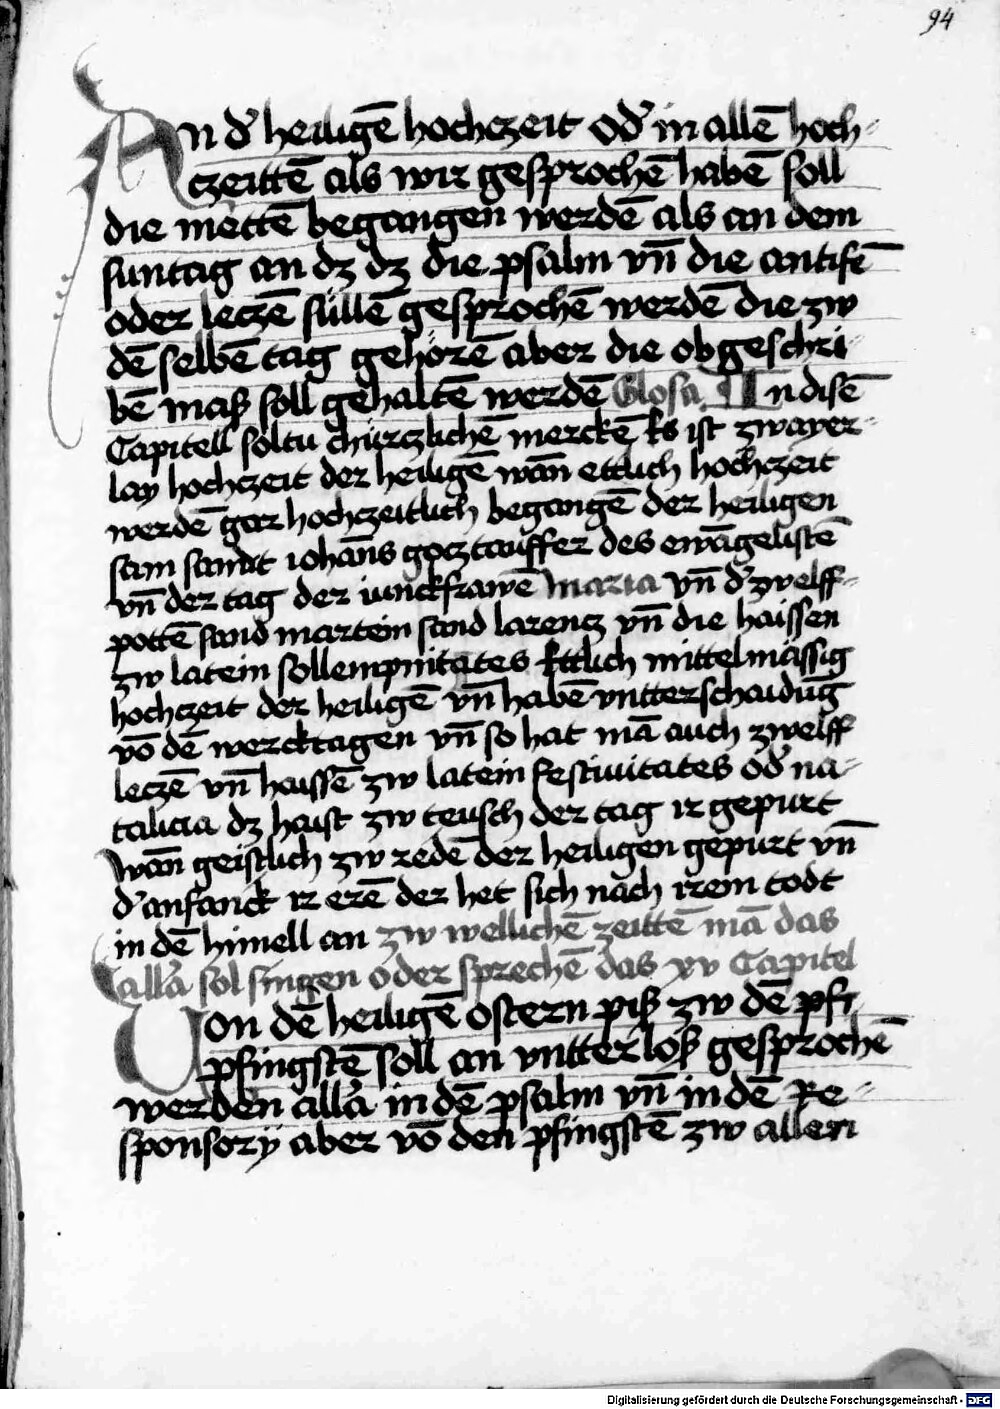 94
An d' heiligē hochczeit od' in allē hoch-
czeittē als wir gesprochē habē soll
die mettē begangen werdē als an dem
suntag an dz dz die psalm vn̄ die antifē
oder leczē süllē gesprochē werdē die zw
dē selbē tag gehörē aber die obgeschri-
bē mass soll gehaltē werdē Glosa In disē
Capitell soltu chürczlichē merckē Es ist zwayer-
lay hochczeit der heiligē wān ettlich hochczeit
werdē gar hochczeitlich begangē der heiligen
sam sandt iohān̄s gocztauffer des ewāgelistē
vn̄ der tag der iunckfrawē Maria vn̄ d' zwelff-
pottē sand martein sand larencz vn̄ die haissen
zw latein sollempnitates Ettlich mittelmässig
hochczeit der heiligē vn̄ habē vntterschaidūg
vō dē wercktagen vn̄ so hat mā auch zwelff
leczē vn̄ haissē zw latein festiuitates od' na-
talicia dz haist zw teusch der tag ir gepurt
wān geistlich zw redē der heiligen gepurt vn̄
d' anfanck ir erē der het sich nach irem todt
in dē himell an zw wellichē zeittē mā das
all'a sol singen oder sprechē das xv Capitel
Von dē heiligē ostern piss zw dē pfi-
pfingstē soll an vntterloss gesprochē
werden all'a in dē psalm vn̄ in dē Re-
sponsorÿ aber vō den pfingstē zw allen
Digitalisierung gefördert durch die Deutsche Forschungsgemeinschaft - DFG